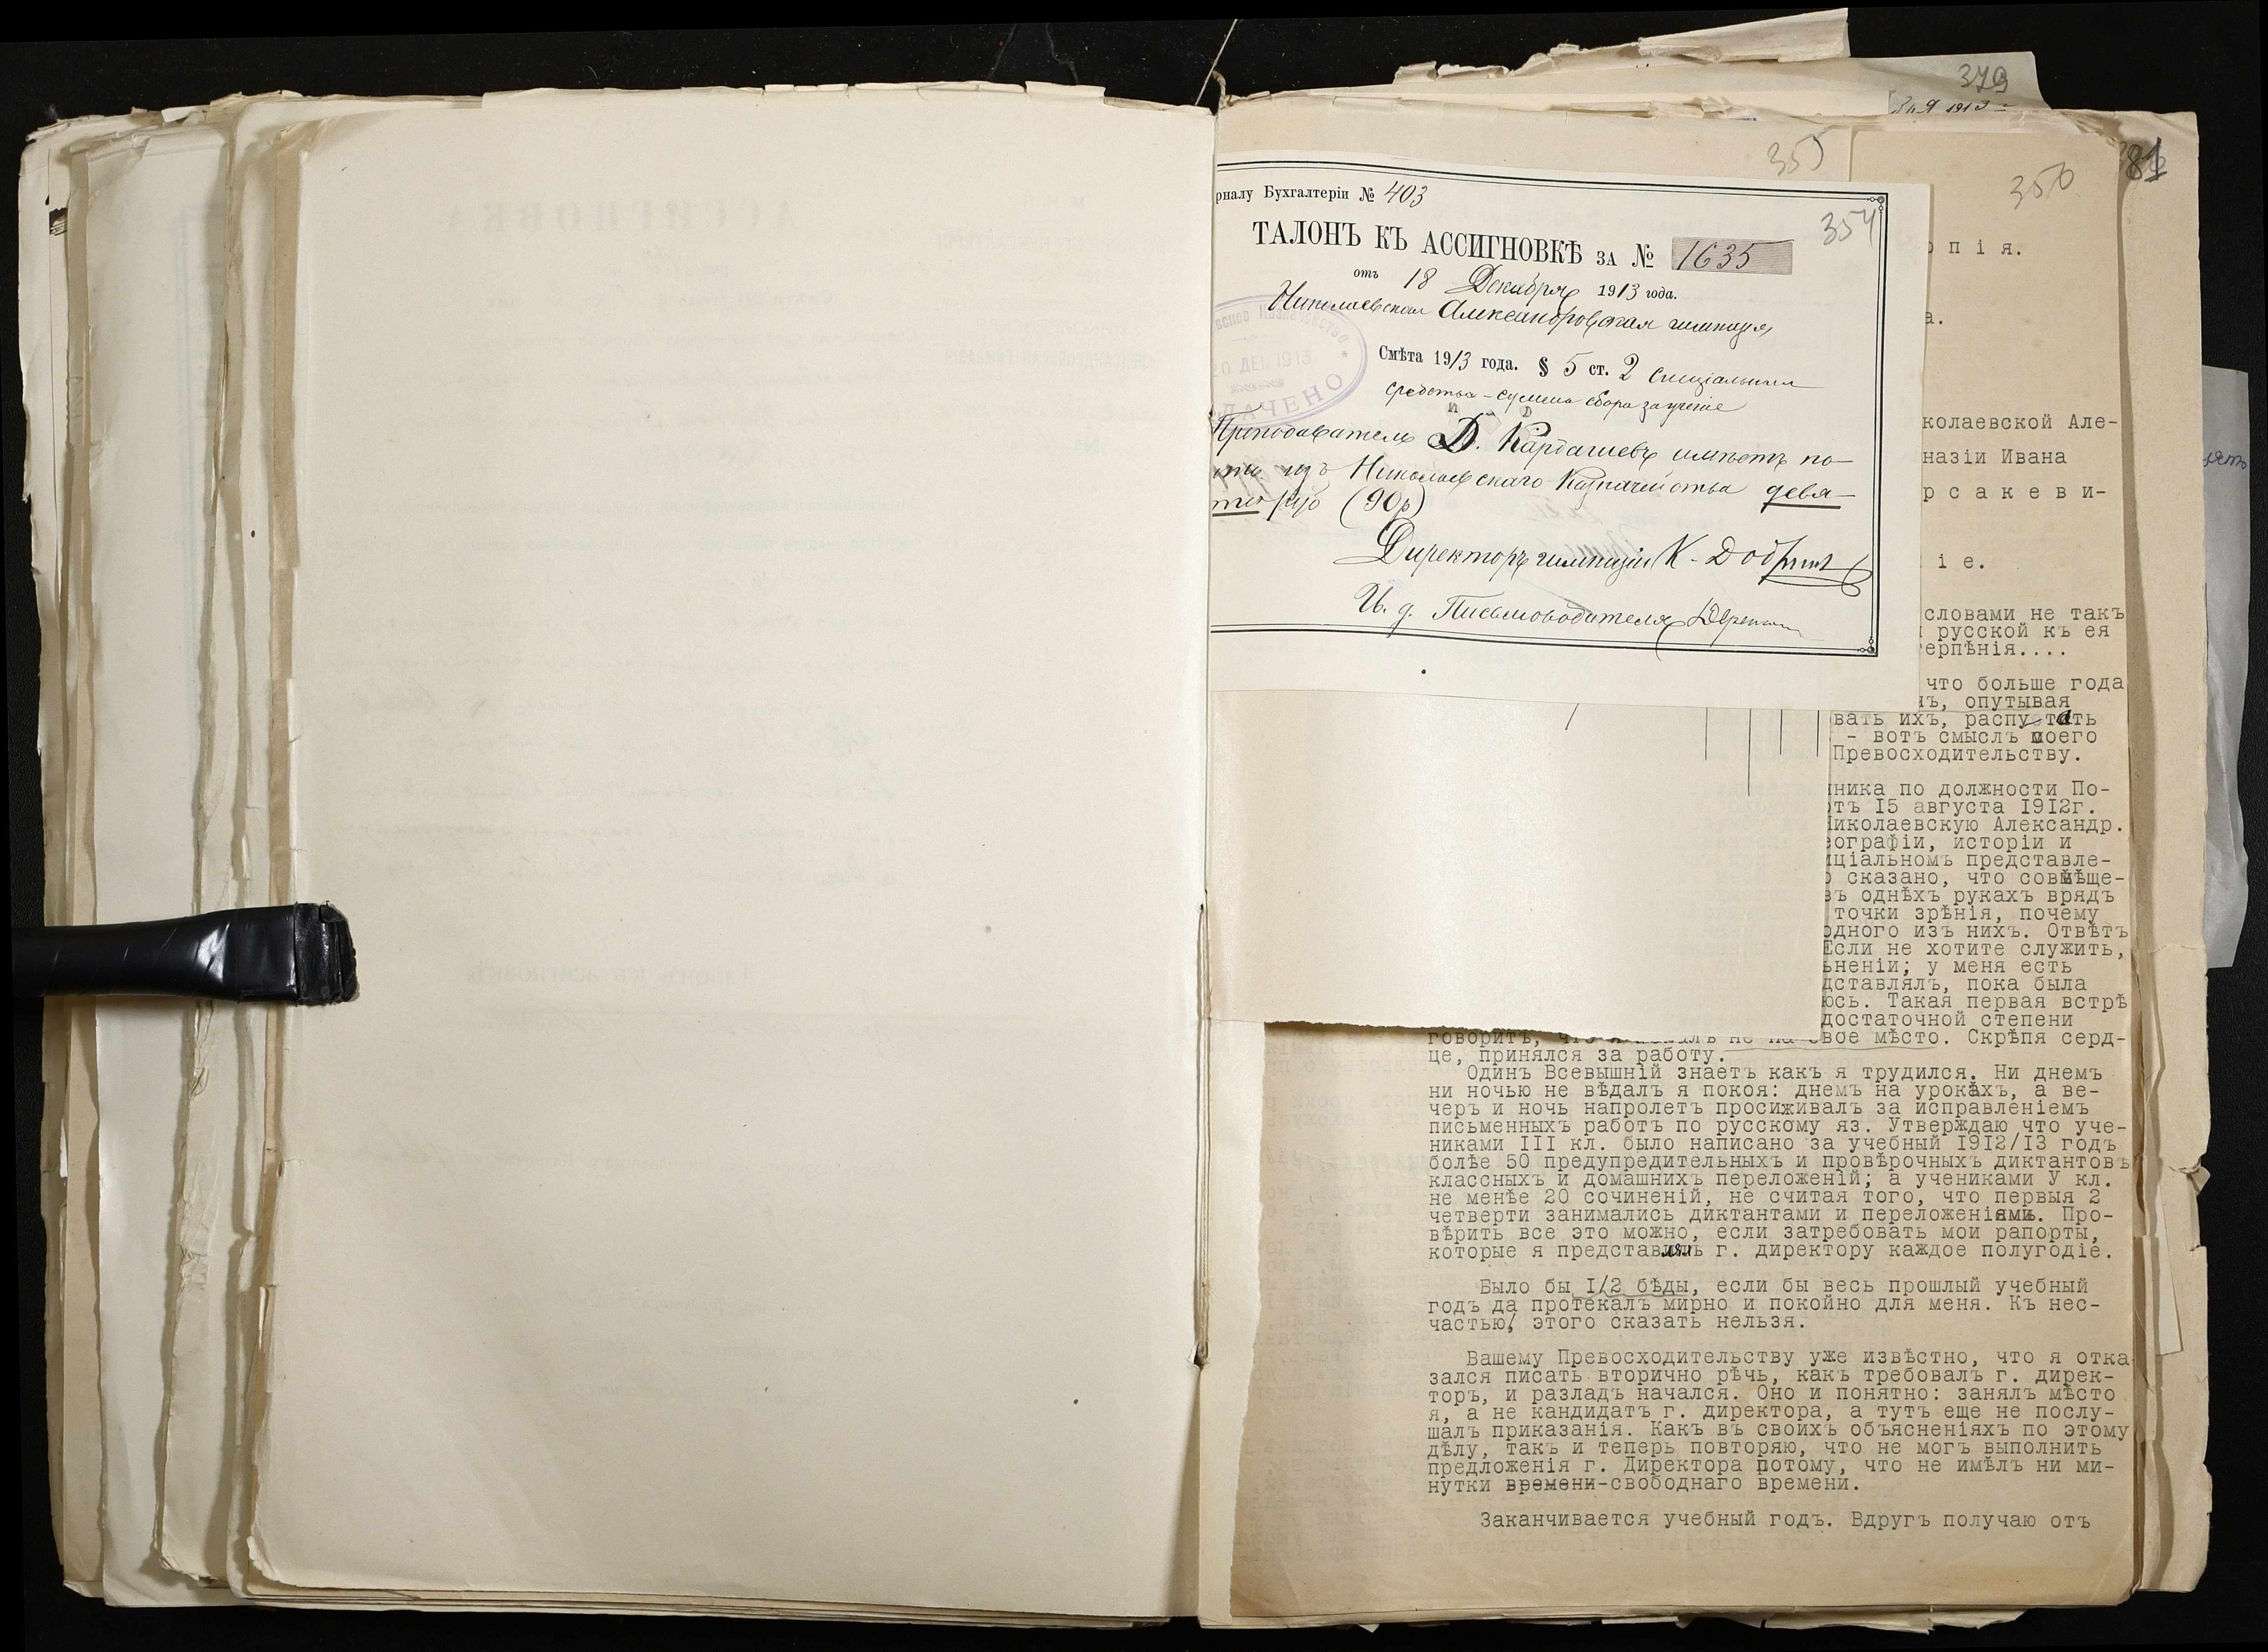 379
355
81
350
рналу Бухгалтеріи № 403
354
ТАЛОНЪ КЪ АССИГНОВКѢ ЗА № 1635
отъ 18 Декабря 1913 года.
Николаевская Александровская гимназія
Смѣта 1913 года. § 5 ст. 2 спеціальныя
средства - сумма сбора за ученіе
20 ДЕК 1913
Преподаватель Д. Кардашевъ имѣетъ по-
изъ Николаевскаго Казначейства девя-
руб (90р)
Директоръ гимназіи К.
И. д. Письмоводителя
опія.
а.
колаевской Але-
назіи Ивана
рсакеви-
іе.
словами не такъ
русской къ ея
ерпѣнія....
что больше года
нъ, опутывая
вать ихъ, распустать
- вотъ смыслъ моего
Превосходительству.
нника по должности По-
отъ 15 августа 1912г.
Николаевскую Александр.
еографіи, исторіи и
иціальномъ представле-
о сказано, что совмѣще-
въ однѣхъ рукахъ врядъ
точки зрѣнія, почему
одного изъ нихъ. Отвѣтъ
Если не хотите служить,
ьненіи; у меня есть
дставлялъ, пока была
юсь. Такая первая встрѣ
достаточной степени
говоритъ, что я не на свое мѣсто. Скрѣпя серд-
це, принялся за работу.
Одинъ Всевышній знаетъ какъ я трудился. Ни днемъ
ни ночью не вѣдалъ я покоя: днемъ на урокахъ, а ве-
черъ и ночь напролетъ просиживалъ за исправленіемъ
письменныхъ работъ по русскому яз. Утверждаю что уче-
никами III кл. было написано за учебный 1912/13 годъ
болѣе 50 предупредительныхъ и провѣрочныхъ диктантовъ
классныхъ и домашнихъ переложеній; а учениками У кл.
не менѣе 20 сочиненій, не считая того, что первыя 2
четверти занимались диктантами и переложеніями. Про-
вѣрить все это можно, если затребовать мои рапорты,
которые я представлялъ г. директору каждое полугодіе.
Было бы I/2 бѣды, если бы весь прошлый учебный
годъ да протекалъ мирно и покойно для меня. Къ нес-
частью, этого сказать нельзя.
Вашему Превосходительству уже извѣстно, что я отка
зался писать вторично рѣчь, какъ требовалъ г. дирек-
торъ, и разладъ начался. Оно и понятно: занялъ мѣсто
я, а не кандидатъ г. директора, а тутъ еще не послу-
шалъ приказанія. Какъ въ своихъ объясненіяхъ по этому
дѣлу, такъ и теперь повторяю, что не могъ выполнить
предложенія г. Директора потому, что не имѣлъ ни ми-
нутки времени-свободнаго времени.
Заканчивается учебный годъ. Вдругъ получаю отъ